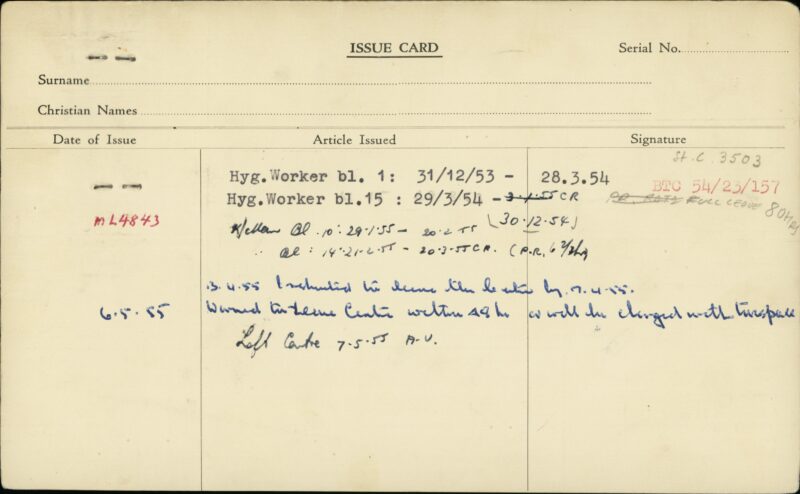 ISSUE CARD
Serial No.
Surname
Christian Names
Date of Issue Article Issued Signature
St. C. 3503
Hyg.Worker bl. 1: 31/12/53 - 28.3.54
BTC 54/23/157
Hyg.Worker bl.15 : 29/3/54 - 3.1.55 CR
FULL LEAVE 80 HRS
ML4843
(30.12.54)
Bl. 10: 29.1.55 - 20.2.55
Bl: 14: 21.2.55 - 20.3.55 CR. (P.R. 6
3.4.55 Instructed to leave the Centre by 7.4.55.
6.5.55 Warned to leave Centre within 48 hr or will be charged with trespass
Left Centre 7.5.55 A.V.